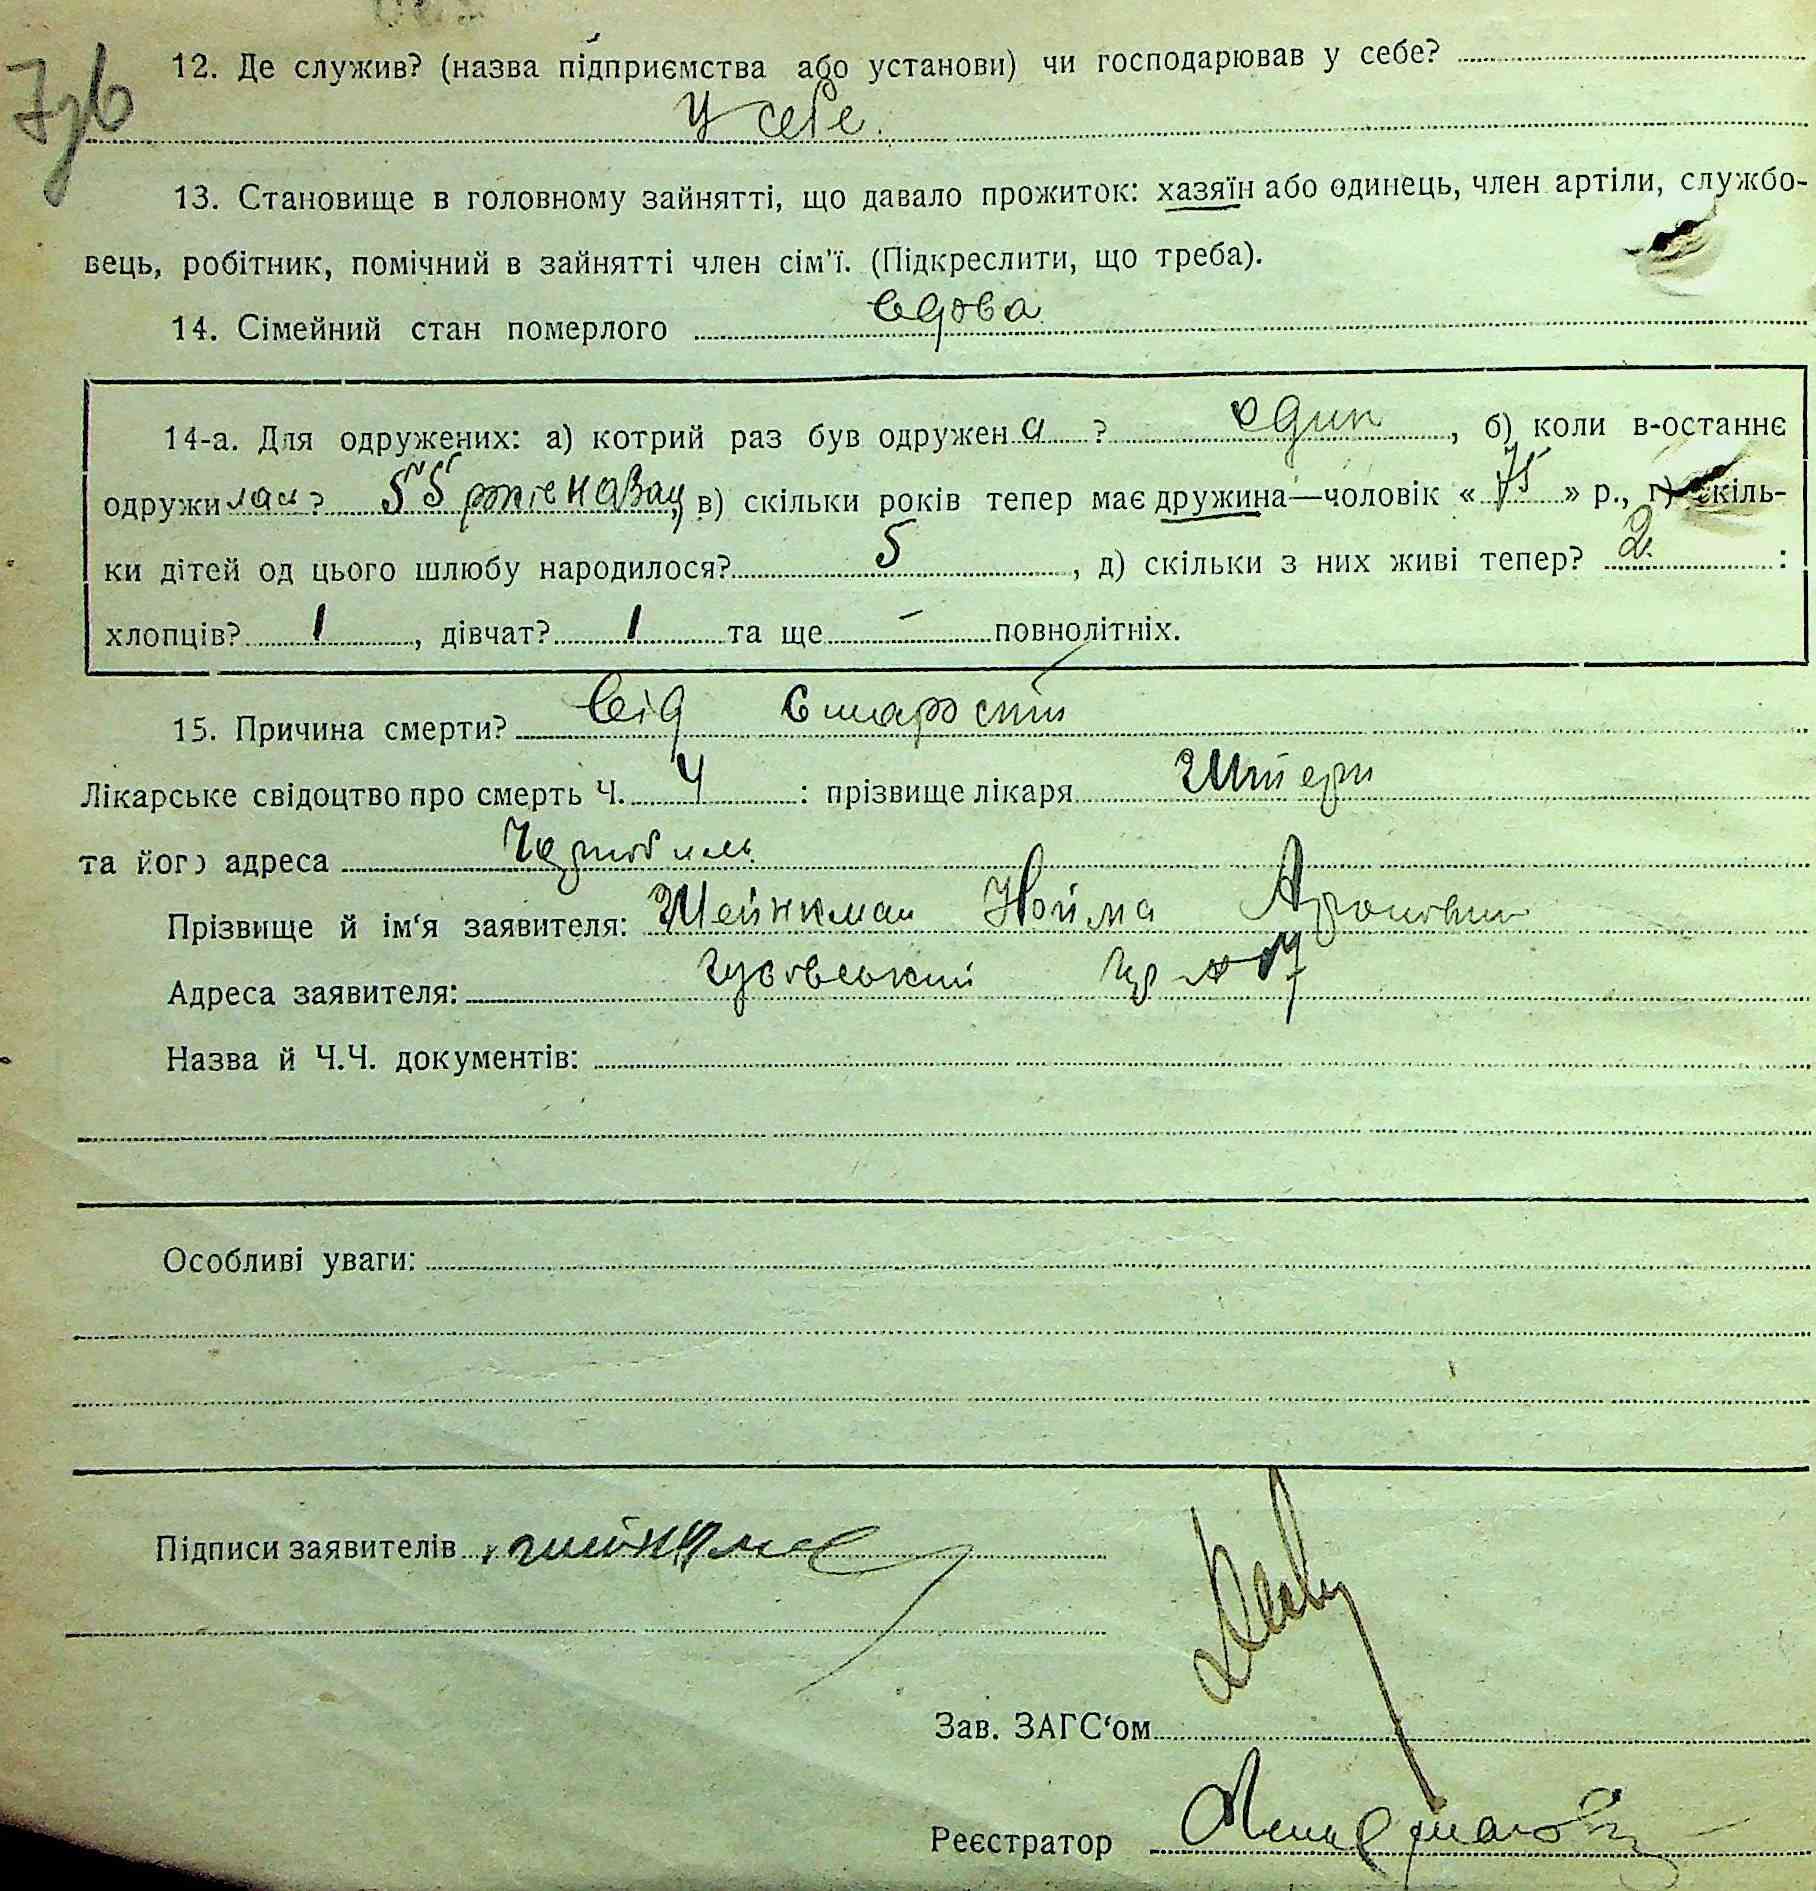 7зв
12. Де служив? (назва підприємства або установи) чи господарював у себе?
У себе.
13. Становище в головному зайнятті, що давало прожиток: хазяїн або одинець, член артіли, службо-
вець, робітник, помічний в зайнятті член сім'ї. (Підкреслити, що треба).
14. Сімейний стан померлого вдова
14-а. Для одружених: а) котрий раз був одружен а ? один , б) коли в-останнє
одружи лась? 55 рокіе назад, в) скільки років тепер має дружина—чоловік « 75 » р., г) скіль-
ки дітей од цього шлюбу народилося? 5 , д) скільки з них живі тепер? 2 :
хлопців? 1 , дівчат? 1 та ще — повнолітніх.
15. Причина смерти? Від старости
Лікарське свідоцтво про смерть Ч. 4 : прізвище лікаря Штерн
та його адреса Чернобиль
Прізвище й ім'я заявителя: Шейнкман Нойма Аронович
Адреса заявителя: 17
Назва й Ч.Ч. документів:
Особливі уваги:
Підписи заявителів
Зав. ЗАГС'ом
Реєстратор